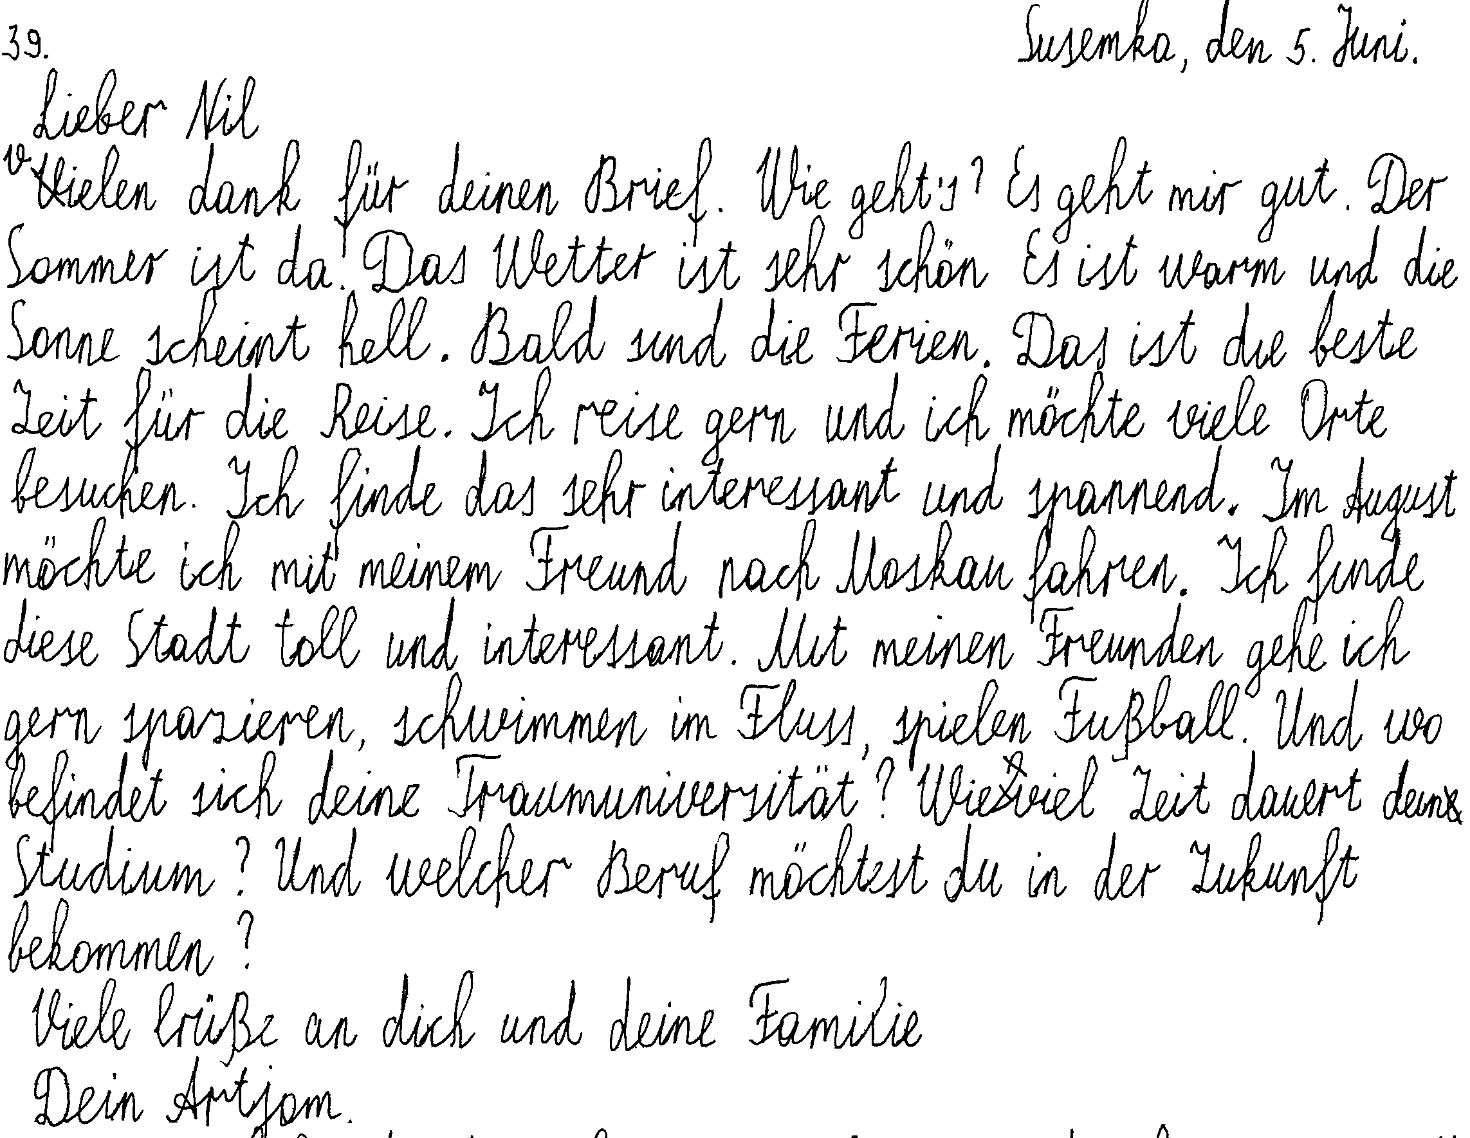 39.
Susemka, den 5. Juni.
Lieber Nil
vielen dank für deinen Brief. Wie geht's? Es geht mir gut. Der
Sommer ist da! Das Wetter ist sehr schön Es ist warm und die
Sonne scheint hell. Bald sind die Ferien. Das ist die beste
Zeit für die Reise. Ich reise gern und ich möchte viele Orte
besuchen. Ich finde das sehr interessant und spannend. Im August
möchte ich mit meinem Freund nach Moskau fahren. Ich finde
diese Stadt toll und interessant. Mit meinen Freunden gehe ich
gern spazieren, schwimmen im Fluss, spielen Fußball. Und wo
befindet sich deine Traumuniversität? Wie viel Zeit dauert dein
Studium? Und welcher Beruf möchtest du in der Zukunft
bekommen?
Viele Grüße an dich und deine Familie
Dein Artjom.